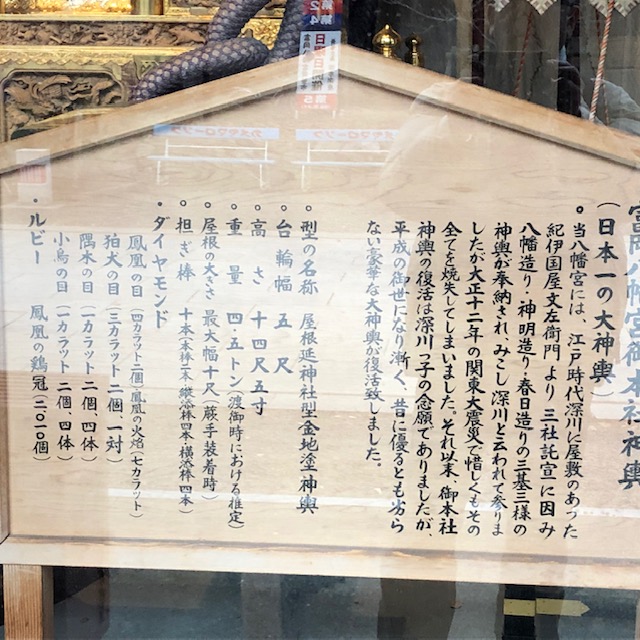 富岡八幡宮御本社神輿
（日本一の大神輿）
。当八幡宮には、江戸時代深川に屋敷のあった
紀伊国屋文左衛門より三社託宣に因み
八幡造り・神明造り・春日造りの三基三様の
神輿が奉納され、みこし深川と云われて参りま
したが大正十二年の関東大震災で惜しくもその
全てを焼失してしまいました。それ以来、御本社
神輿の復活は深川っ子の念願でありましたが、
平成の御世になり漸く、昔に優るとも劣ら
ない豪華な大神輿が復活致しました。
。型の名称 屋根延神社型金地塗神輿
。台輪幅 五尺
。高さ 十四尺五寸
。重量 四・五トン（渡御時における推定）
。屋根の大きさ 最大幅十尺（蕨手装着時）
。担ぎ棒 十本（本棒二本 縦添棒四本 横添棒四本）
・ダイヤモンド
鳳凰の目（四カラット二個）鳳凰の火焔（七カラット）
狛犬の目（三カラット二個一対）
隅木の目（一カラット二個四体）
小鳥の目（一カラット二個四体）
・ルビー 鳳凰の鶏冠（二〇一〇個）